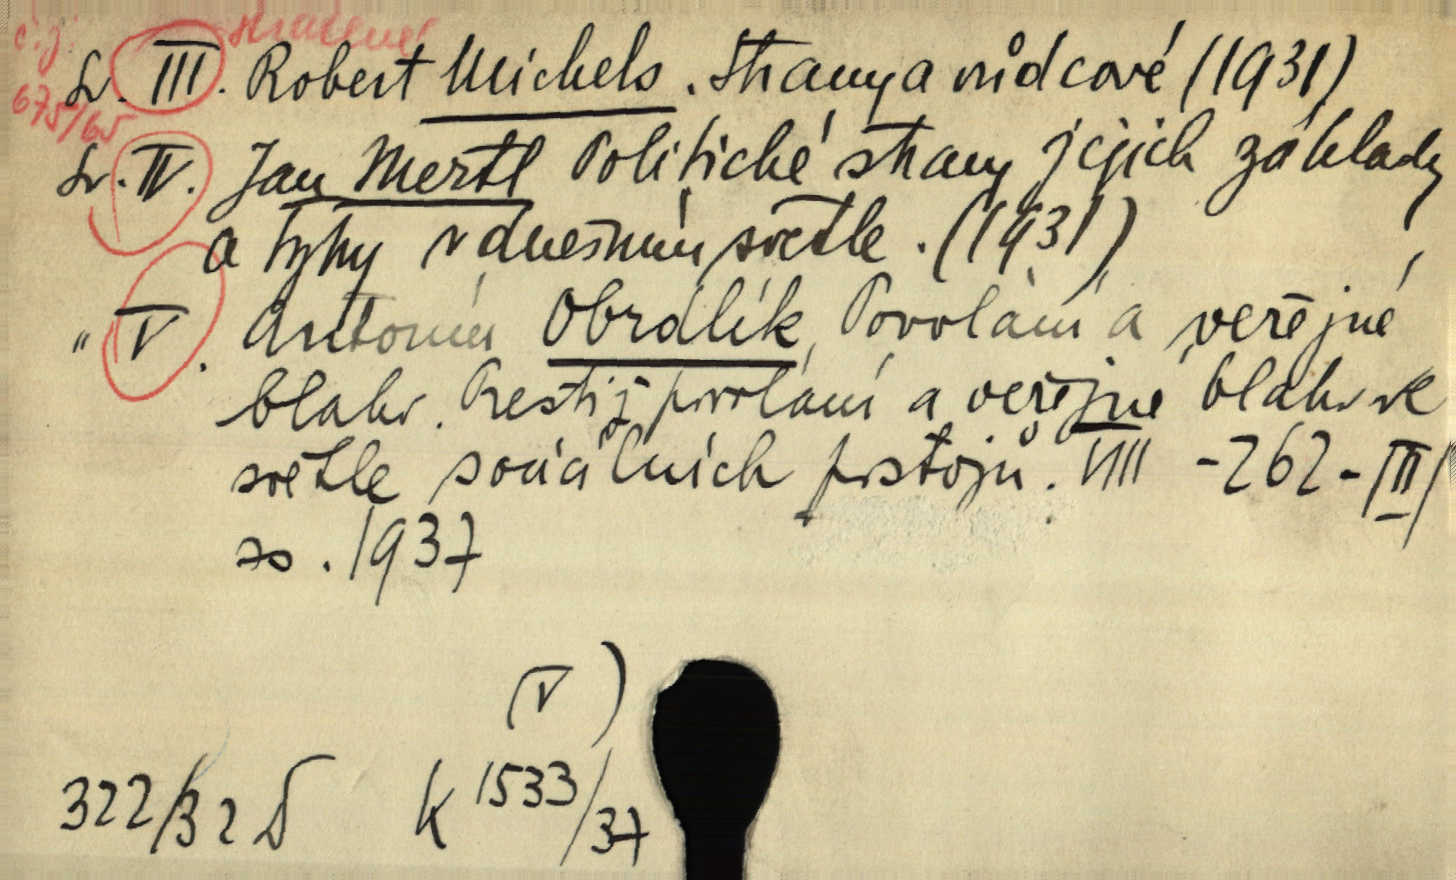 č.j. ztracené
675/65
Sv. III. Robert Michels. Strany a vůdcové (1931)
Sv. IV. Jan Mertl Politické strany jejich základy
a typy v dnešním světle. (1931)
" V. Antonín Obrdlík, Povolání a veřejné
blaho. Prestiž povolání a veřejné blaho ve
světle sociálních postojů. VIII -262-[III]
s. 1937
(V)
322/32 K 1533/37